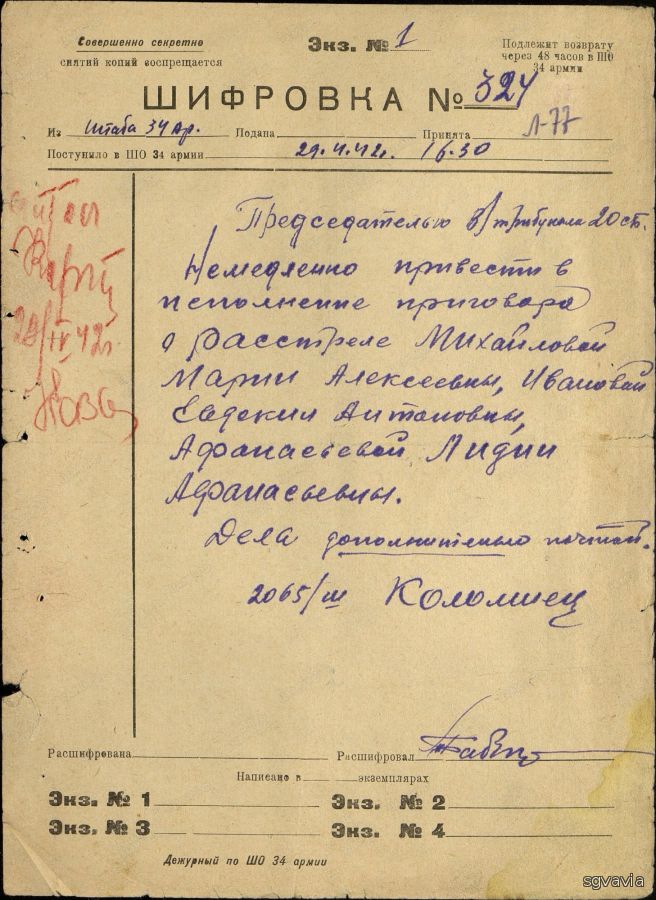 Совершенно секретно
снятий копий воспрещается
Экз. № 1
Подлежит возврату
через 48 часов в ШО
34 армии
ШИФРОВКА № 324
Л-77
Из Штаба 34 Ар. Подана Принята
Поступило в ШО 34 армии 29.4.42г. 16.30
Председателю в/трибунала 20 сб.
Немедленно привести в
исполнение приговора
о расстреле Михайловой
Марии Алексеевны, Ивановой
Евдокии Антоновны,
Афанасьевой Лидии
Афанасьевны.
Дела дополнительно почтой.
2065/ш Коломиец
42г.
Расшифрована Расшифровал
Написано в экземплярах
Экз. № 1 Экз. № 2
Экз. № 3 Экз. № 4
Дежурный по ШО 34 армии
sgvavia